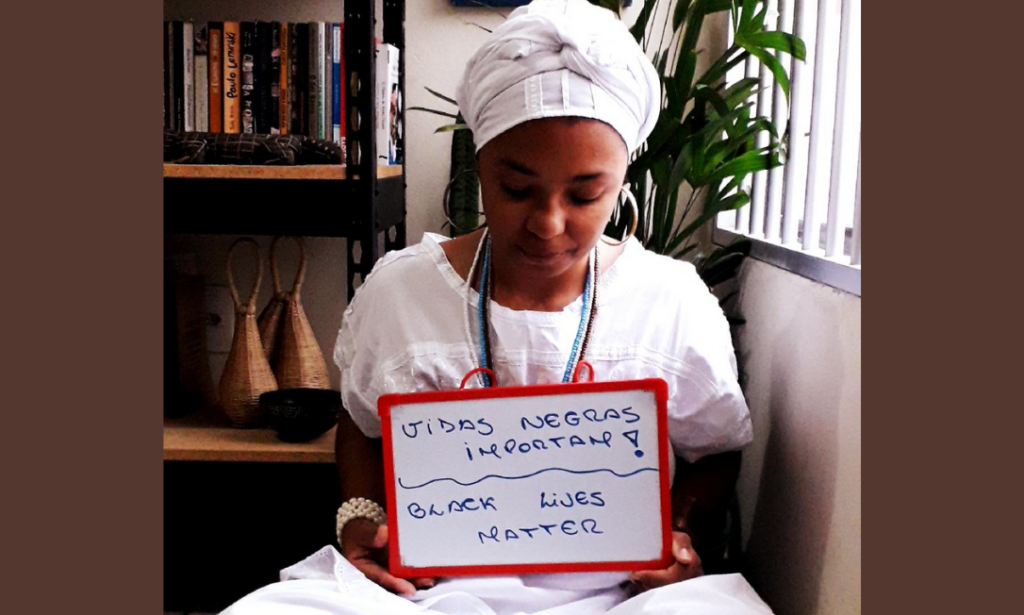 Paulo Leminski
VIDAS NEGRAS
IMPORTAM!
BLACK LIVES
MATTER